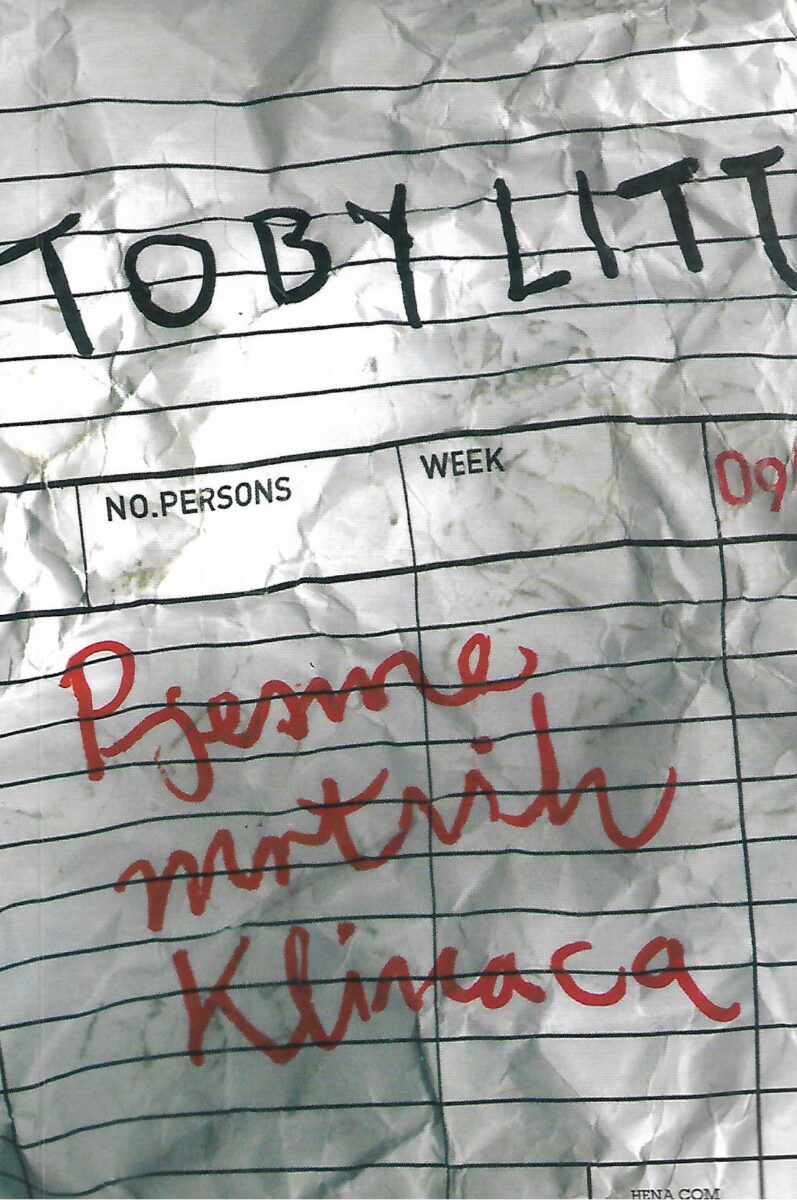 TOBY LITT
NO.PERSONS
WEEK
09
Pjesme
mrtvih
Klinaca
HENA COM